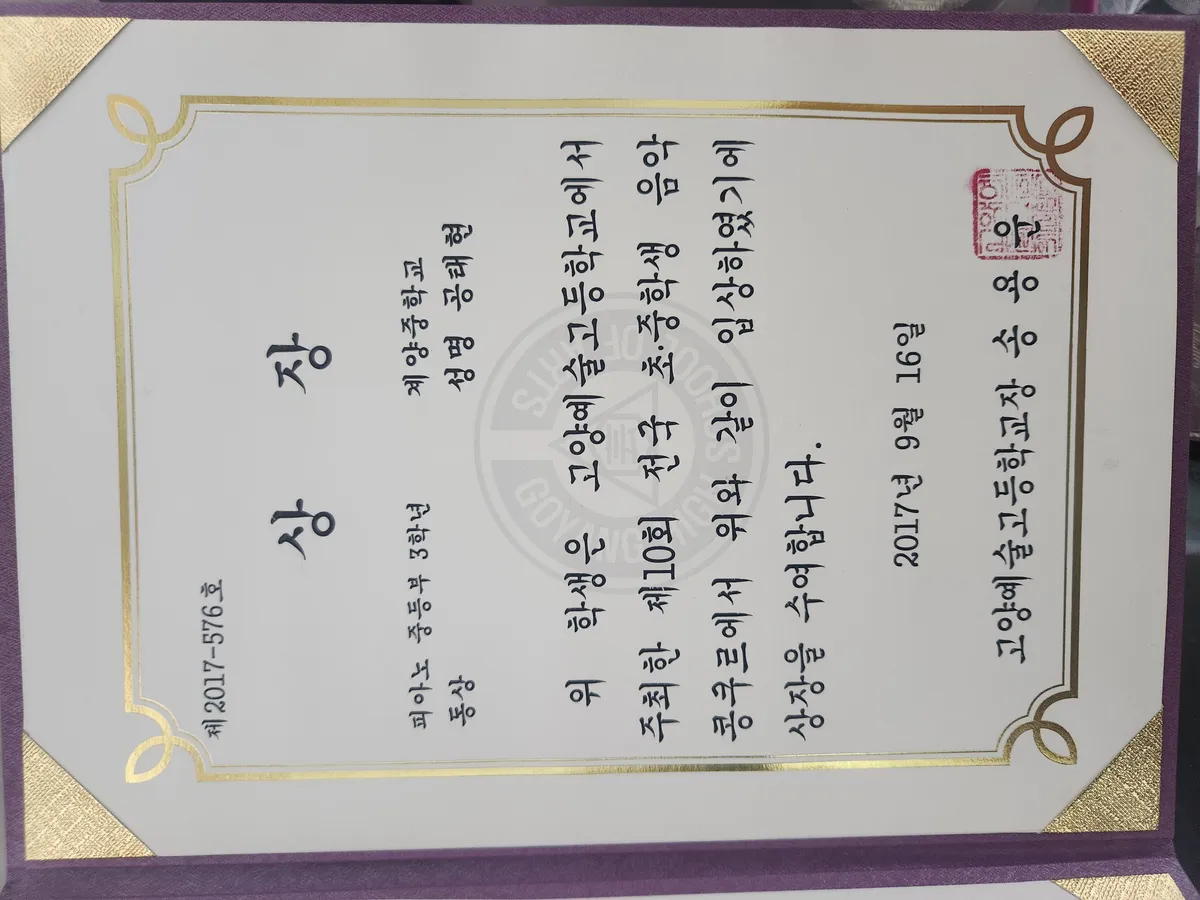 제2017-576호
상 장
피아노 중등부 3학년 계양중학교
동상 성명 공태현
위 학생은 고양예술고등학교에서
주최한 제10회 전국 초·중학생 음악
콩쿠르에서 위와 같이 입상하였기에
상장을 수여합니다.
2017년 9월 16일
고양예술고등학교장 송 용 운
GOYANG HIGH SCHOOL OF ARTS